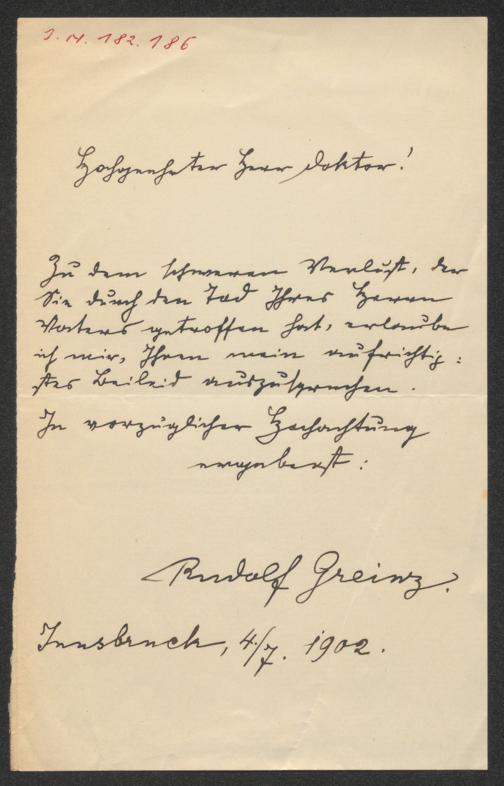 I. N. 182.186
Hochgeehrter Herr Doktor!
Zu dem schweren Verlust, der
Sie durch den Tod Ihres Herrn
Vaters getroffen hat, erlaube
ich mir, Ihnen mein aufrichtig=
stes Beileid auszusprechen.
In vorzüglicher Hochachtung
ergebenst:
Rudolf Greinz.
Innsbruck, 4./7. 1902.